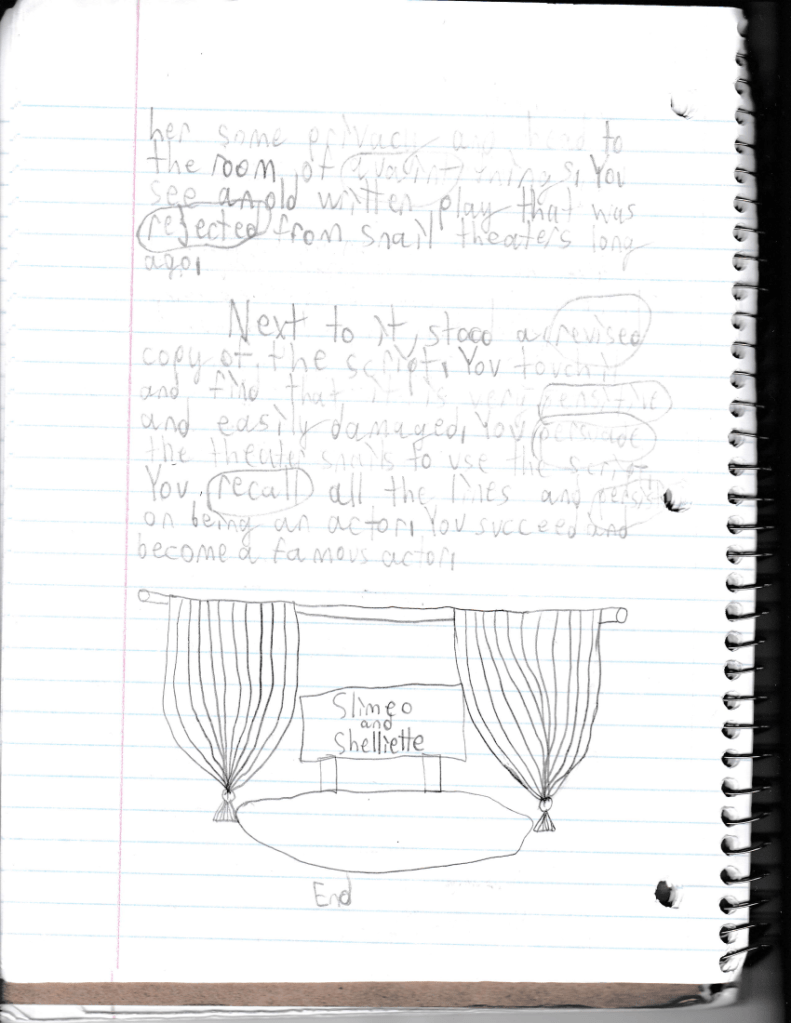 her some privacy and head to
the room of quaint things. You
see an old written play that was
rejected from snail theaters long
ago.
Next to it, stood a revised
copy of the script. You touch it
and find that it is very
and easily damaged. You persuade
the theater snails to use the script.
You recall all the lines and persist
on being an actor. You succeed and
become a famous actor.
Slimeo
and
Shelliette
End